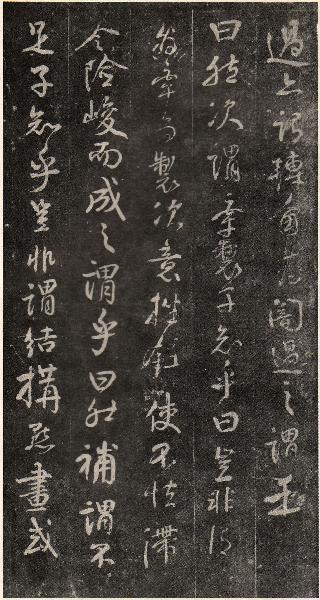 過謂轉角闇過之謂乎
曰然次謂牽製子知乎曰豈非謂
牽為製次意挫鋒使不怯滯
令險峻而成之謂乎曰然補謂不
足子知乎豈非謂結構點畫或